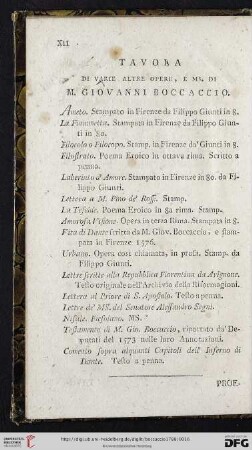 XII
TAVOLA
DI VARIE ALTRE OPERE, E MS. DI
M. GIOVANNI BOCCACCIO.
Ameto. Stampato in Firenze da Filippo Giunti in 8.
La Fiammetta. Stampata in Firenze da Filippo Giun-
ti in 8o.
Filocolo o Filocopo. Stamp. in Firenze da' Giunti in 8.
Filostrato. Poema Eroico in ottava rima. Scritto a
penna.
Laberinto d'Amore. Stampato in Firenze in 8o. da Fi-
lippo Giunti.
Lettera a M. Pino de' Rossi. Stamp.
La Teseide. Poema Eroico in 8a rima. Stamp.
Amorosa Visione. Opera in terza Rima. Stampata in 8.
Vita di Dante scritta da M. Giov. Boccaccio, e stam-
pata in Firenze 1576.
Urbano. Opera così chiamata, in prosa. Stamp. da
Filippo Giunti.
Lettre scritte alla Repubblica Fiorentina da Avignone.
Testo originale nell'Archivio delle Riformagioni.
Lettera al Priore di S. Apostolo. Testo a penna.
Lettre de' MS. del Senatore Alessandro Segni.
Ninfale Fiesolano. MS.
Testamento di M. Gio. Boccaccio, riportato da' De-
putati del 1573 nelle loro Annotazioni.
Comento sopra alquanti Capitoli dell' Inferno di
Dante. Testo a penna.
PROE-